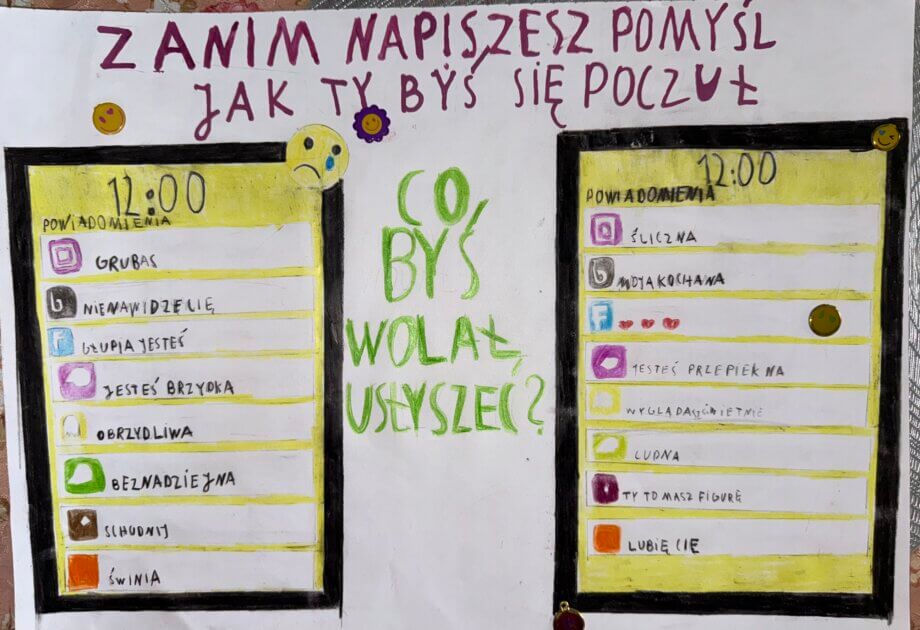 ZANIM NAPISZESZ POMYŚL
JAK TY BYŚ SIĘ POCZUŁ
12:00
POWIADOMIENIA
GRUBAS
b NIENAWIDZE CIĘ
F GŁUPIA JESTEŚ
JESTEŚ BRZYDKA
OBRZYDLIWA
BEZNADZIEJNA
SCHUDNIJ
ŚWINIA
CO,
BYŚ
WOLAŁ,
USŁYSZEĆ?
12:00
POWIADOMIENIA
ŚLICZNA
b MOJA KOCHANA
F
JESTEŚ PRZEPIEKNA
WYGLĄDASZ ŚWIETNIE
CUDNA
TY TO MASZ FIGURĘ
LUBIĘ CIE